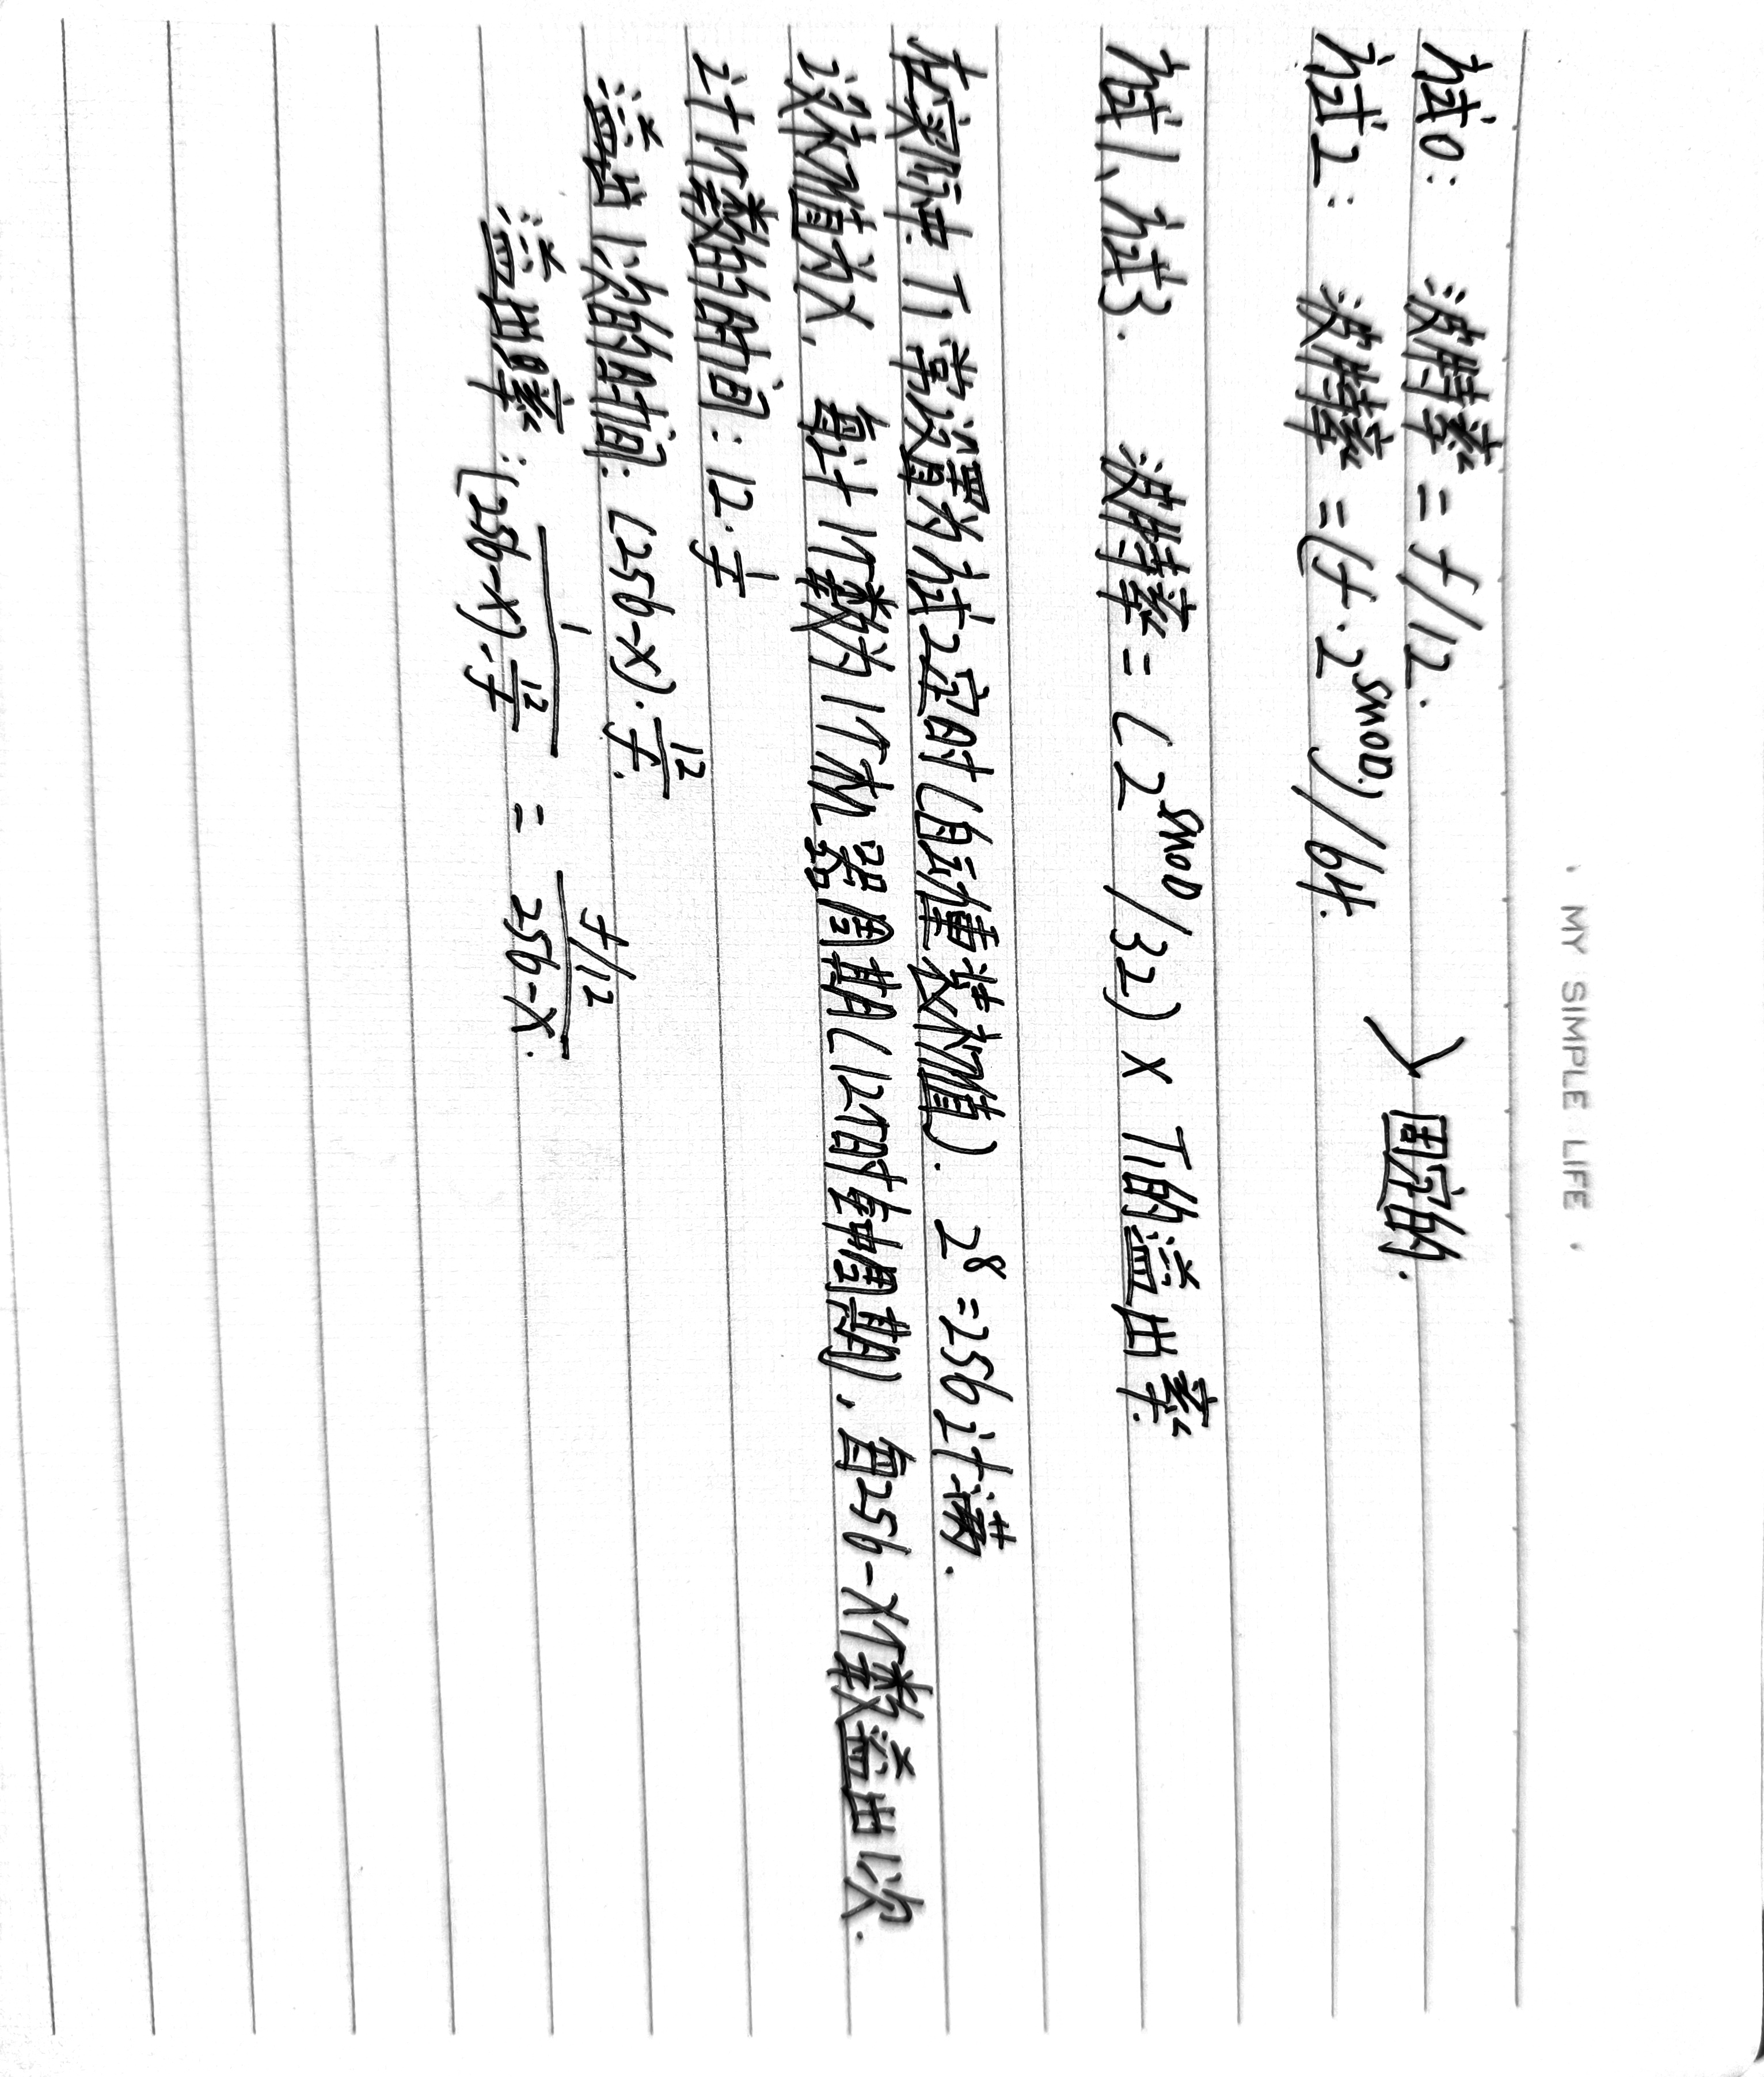 · MY SIMPLE LIFE ·
方式0: 波特率 = f/12.
方式2: 波特率 = (f·2^SMOD)/64. > 固定的.
方式1、方式3. 波特率 = (2^SMOD/32) × T1的溢出率
在实际中 T1 常设置为方式2定时 (自动重装初值). 2^8 = 256计满.
设初值为X, 每计1个数为1个机器周期 (12个时钟周期), 每256-X个数溢出1次.
计1个数的时间: 12·1/f
溢出1次的时间: (256-X)·12/f.
溢出率: 1/[(256-X)·12/f] = (f/12)/(256-X).